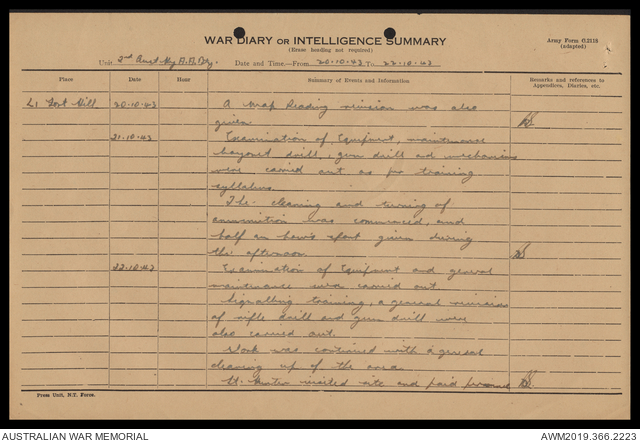 WAR DIARY OR INTELLIGENCE SUMMARY
(Erase heading not required)
Army Form C.2118
(adapted)
Unit 2nd Aust Hy A.A. Bty. Date and Time.—From 20.10.43 To 22.10.43
Place Date Hour Summary of Events and Information Remarks and references to
Appendices, Diaries, etc.
L1 Fort Hill 20.10.43 A map reading revision was also
given.
21.10.43 Examination of Equipment, maintenance
bayonet drill, gun drill and mechanism
were carried out as per training
syllabus.
The cleaning and turning of
ammunition was commenced, and
half an hour's sport given during
the afternoon.
22.10.43 Examination of Equipment and general
maintenance was carried out.
Signalling training, a general revision
of rifle drill and gun drill were
also carried out.
Work was continued with a general
cleaning up of the area.
Lt. visited site and paid personnel
Press Unit, N.T. Force.
AUSTRALIAN WAR MEMORIAL
AWM2019.366.2223